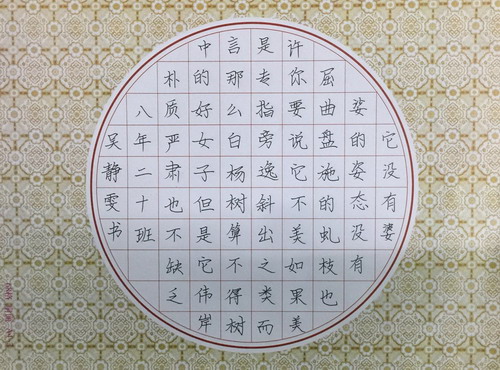 它没有婆
娑的姿态没有
屈曲盘施的虬枝也
许你要说它不美如果美
是专指旁逸斜出之类而
言那么白杨树算不得树
中的好女子但是它伟岸
朴质严肃也不缺乏
八年二十班
吴静雯书